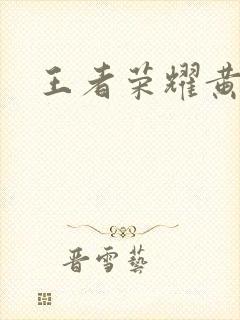 王者荣耀黄
晋雪藝